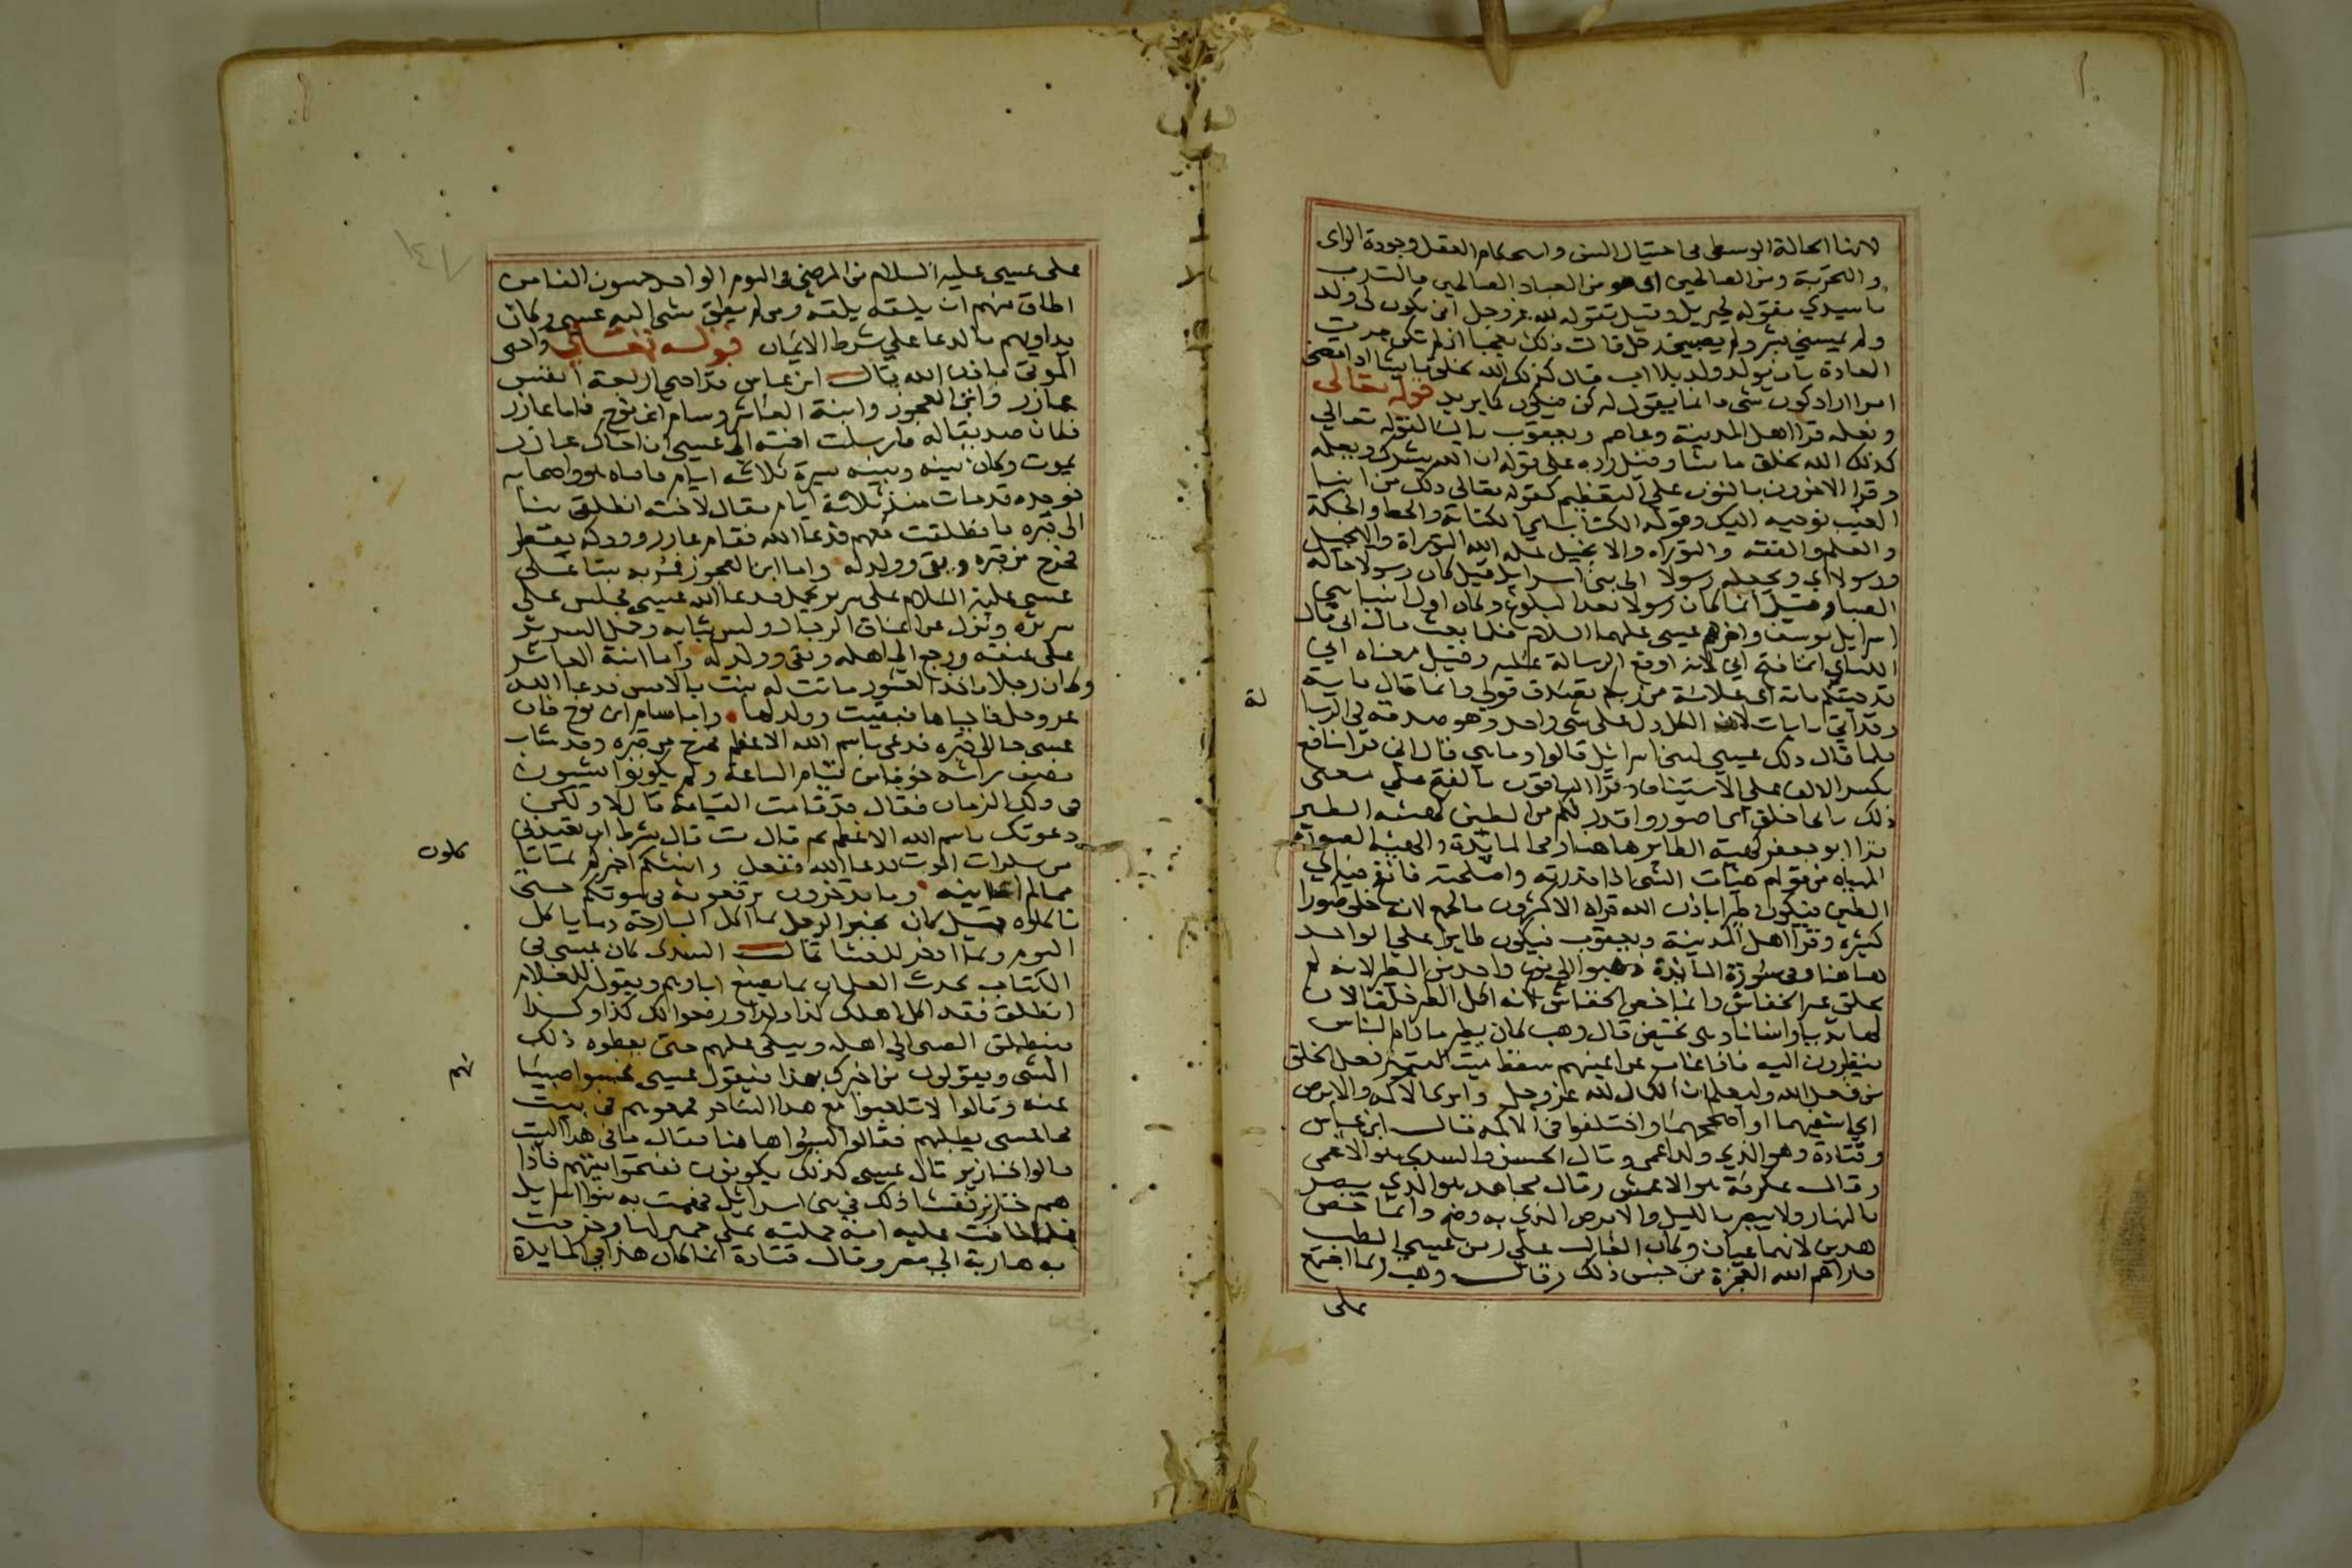 لانها الحالة الوسطى في احتيال السن واستحكام العقل وجودة الراى
والتجربة ومن الصالحين اى هو من العباد الصالحين قالت رب
ياسيدي تقوله لجبريل وقيل تقوله لله عز وجل انى يكون لى ولد
ولم يمسسني بشر ولم يصبني رجل قالت ذلك تعجبا اذ لم تكن جرت
العادة بان يولد ولد بلا اب قال كذلك الله يخلق ما يشا اذا قضى
امرا اراد كون شى فانما يقول له كن فيكون كما يريد قوله تعالى
ونعلمه قرا اهل المدينة وعاصم ويعقوب باليا لقوله تعالى
كذلك الله يخلق ما يشا وقيل رده على قوله ان الله يبشرك ويعلمه
وقرا الاخرون بالنون على التعظيم كقوله تعالى ذلك من انبا
الغيب نوحيه اليك وقوله الكتاب اى الكتابة والخط والحكمة
والعلم والفقه والتوراه والانجيل علمه الله التوراة والانجيل
ورسولا اى ويجعله رسولا الى بنى اسرايل قيل كان رسولا حالة
الصبا وقيل انما كان رسولا بعد البلوغ وكان اول انبيا بنى
اسرايل يوسف واخرهم عيسى عليهما السلام فلما بعث قال انى قال
الكساي انما فتح انى لانه اوقع الرسالة عليه وقيل معناه انى
قد جيتكم باية اى علامة من ربكم تصدق قولى وانما قال باية
وقد اتى بايات لان الكل دل على شى واحد وهو صدقه في الرسا
لة
فلما قال ذلك عيسى لبنى اسرائيل قالوا وما هي قال انى قرا نافع
بكسر الالف على الاستيناف وقرا الباقون بالفتح على معنى
ذلك بانى اخلق اى اصور واقدر لكم من الطين كهيئة الطير
قرا ابو جعفر كهيئة الطاير هاهنا وفى المائدة والهيئة الصورة
المهياه من قولهم هيات الشى اذا قدرته واصلحته فانفخ فيه اى
الطين فيكون طيرا باذن الله قراه الاكثرون بالجمع لانه خلق طيرا
كثيرا وقرا اهل المدينة ويعقوب فيكون طايرا على الواحد
هاهنا وفى سورة المائدة ذهبوا الى نوع واحد من الطير لانه لم
يخلق غير الخفاش وانما خص الخفاش لانه اكمل الطير خلقا لان
لها ثديا واسنانا وهى تحيض قال وهب كان يطير مادام الناس
ينظرون اليه فاذا غاب عن اعينهم سقط ميتا ليتميز فعل الخلق
من فعل الله وليعلم ان الكمال لله عز وجل وابرى الاكمه والابرص
اي اشفيهما واصححهما واختلفوا في الاكمه قال ابن عباس
وقتادة وهو الذي ولد اعمى وقال الحسن والسدي هو الاعمى
وقال عكرمة هو الاعمش وقال مجاهد هو الذي يبصر
بالنهار ولا يبصر بالليل والابرص الذي به وضح وانما خص
هذين لانهما عيان وكان الغالب على زمن عيسى الطب
فاراهم الله المعجزة من جنس ذلك وقال وهب ربما اجتمع
على
على عيسى عليه السلام من المرضى في اليوم الواحد خمسون الفا من
اطاق منهم ان يبلغه بلغه ومن لم يطق مشى اليه عيسى وكان
يداويهم بالدعا على شرط الايمان قوله تعالى واحى
الموتى باذن الله قال ابن عباس قد احيى اربعة انفس
عازر وابن العجوز وابنة العاشر وسام ابن نوح فاما عازر
فكان صديقا له فارسلت اخته الى عيسى ان اخاك عازر
يموت وكان بينه وبينه مسيرة ثلاثة ايام فاتاه هو واصحابه
فوجده قد مات منذ ثلاثة ايام فقال لاخته انطلقى بنا
الى قبره فانطلقت معهم فدعا الله فقام عازر وودكه يقطر
فخرج من قبره وبقى وولد له واما ابن العجوز فمر به ميتا على
عيسى عليه السلام على سرير يحمل فدعا الله عيسى فجلس على
سريره ونزل عن اعناق الرجال ولبس ثيابه وحمل السرير
على عنقه ورجع الى اهله وبقى وولد له واما ابنة العاشر
وكان رجلا ياخذ العشور ماتت له بنت بالامس فدعا الله
عز وجل فاحياها فبقيت وولد لها واما سام ابن نوح فان
عيسى جا الى قبره فدعى باسم الله الاعظم فخرج من قبره وقد شاب
نصف راسه خوفا من قيام الساعة ولم يكونوا يشيبون
فى ذلك الزمان فقال قد قامت القيامة قال لا ولكن
دعوتك باسم الله الاعظم ثم قال مت قال بشرط ان يعيذنى
من سكرات الموت فدعا الله ففعل وانبئكم اخبركم بما تا
كلون
مما لم اعاينه وما تدخرون ترفعونه في بيوتكم حتى
تاكلوه قيل كان يخبر الرجل بما اكل البارحة وما ياكل
اليوم وبما ادخر للعشا قال السدى كان عيسى في
الكتاب يحدث الغلمان بما يصنع اباوهم ويقول للغلام
انطلق فقد اكل اهلك كذا وكذا ورفعوا لك كذا وكذا
فينطلق الصبى الى اهله ويبكى عليهم حتى يعطوه ذلك
الشى ويقولون من اخبرك بهذا فيقول عيسى فحبسوا صبيا
نهم
عنه وقالوا لا تلعبوا مع هذا الساحر فجمعوهم في بيت
فجا عيسى يطلبهم فقالوا ليسوا هاهنا فقال ما في هذا البيت
قالوا خنازير قال عيسى كذلك يكونون ففتحوا عنهم فاذا
هم خنازير ففشا ذلك في بنى اسرائيل فهمت به بنوا اسرايل
فلما خافت عليه امه حملته على حمير لها وخرجت
به هاربة الى مصر وقال قتادة انما كان هذا في المايدة